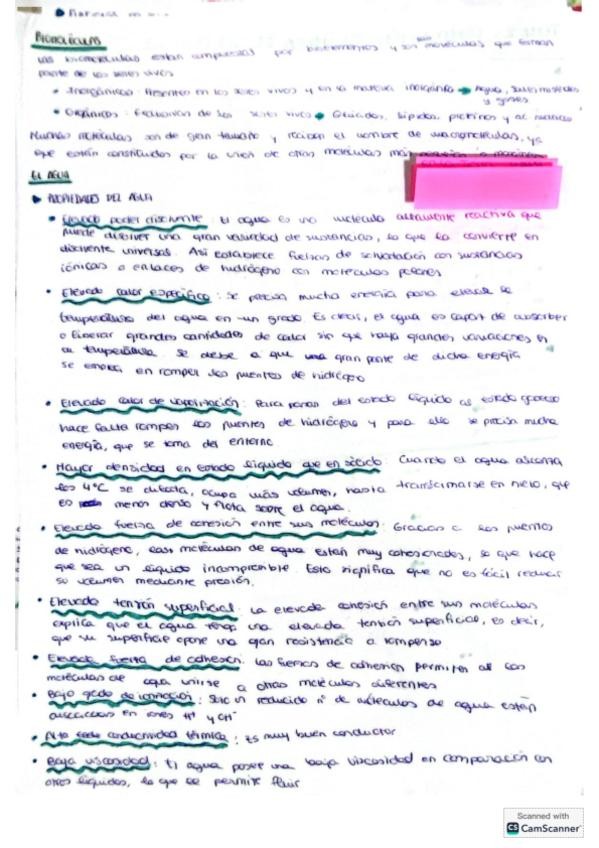 BIOMOLÉCULAS
Las biomoléculas están compuestas por bioelementos y son las moléculas que forman
parte de los seres vivos
• Inorgánicas: Presentes en los seres vivos y en la materia inorgánica → Agua, sales minerales
y gases
• Orgánicas: Exclusivas de los seres vivos → Glúcidos, lípidos, proteínas y ac. nucleicos
Muchas moléculas son de gran tamaño y reciben el nombre de macromoléculas, ya
que están constituidas por la unión de otras moléculas más
EL AGUA
▶ PROPIEDADES DEL AGUA
• Elevado poder disolvente: El agua es una molécula altamente reactiva que
puede disolver una gran variedad de sustancias, lo que la convierte en
disolvente universal. Así establece fuerzas de solvatación con sustancias
iónicas o enlaces de hidrógeno con moléculas polares
• Elevado calor específico: Se precisa mucha energía para elevar la
temperatura del agua en un grado. Es decir, el agua es capaz de absorber
o liberar grandes cantidades de calor sin que haya grandes variaciones en
su temperatura. Se debe a que una gran parte de dicha energía
se emplea en romper los puentes de hidrógeno
• Elevado calor de vaporización: Para pasar del estado líquido al estado gaseoso
hace falta romper los puentes de hidrógeno y para ello se precisa mucha
energía, que se toma del entorno
• Mayor densidad en estado líquido que en sólido. Cuando el agua alcanza
los 4°C se dilata, ocupa más volumen, hasta transformarse en hielo, que
es menos denso y flota sobre el agua.
• Elevada fuerza de cohesión entre sus moléculas: Gracias a los puentes
de hidrógeno, las moléculas de agua están muy cohesionadas, lo que hace
que sea un líquido incompresible. Esto significa que no es fácil reducir
su volumen mediante presión.
• Elevada tensión superficial: La elevada cohesión entre sus moléculas
explica que el agua tenga una elevada tensión superficial, es decir,
que su superficie opone una gran resistencia a romperse
• Elevada fuerza de adhesión: Las fuerzas de adhesión permiten a las
moléculas de agua unirse a otras moléculas diferentes
• Bajo grado de ionización: Solo un reducido nº de moléculas de agua están
disociadas en iones H⁺ y OH⁻
• Alta conductividad térmica: Es muy buen conductor
• Baja viscosidad: El agua posee una baja viscosidad en comparación con
otros líquidos, lo que le permite fluir
Scanned with
CS CamScanner